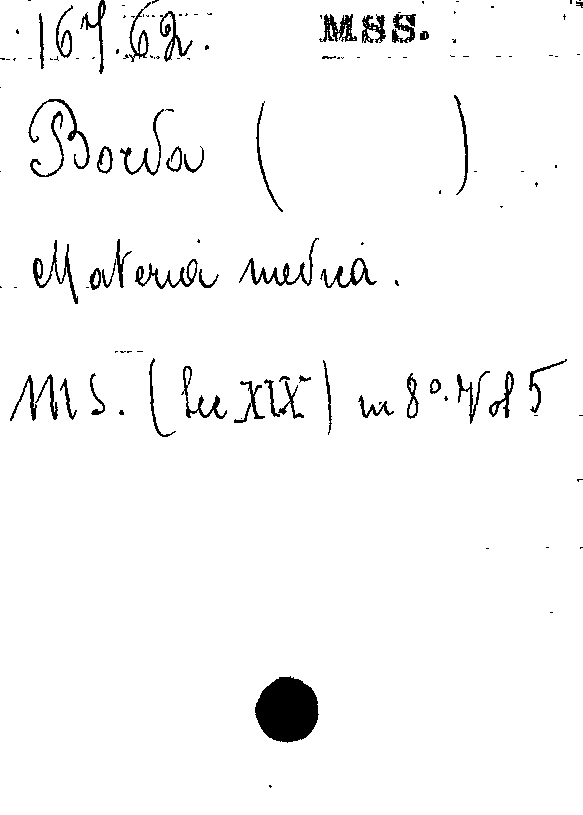 167.62. MSS.
Borda ( )
Materia medica.
MS. (Sec XIX) in 8º. Vol 5